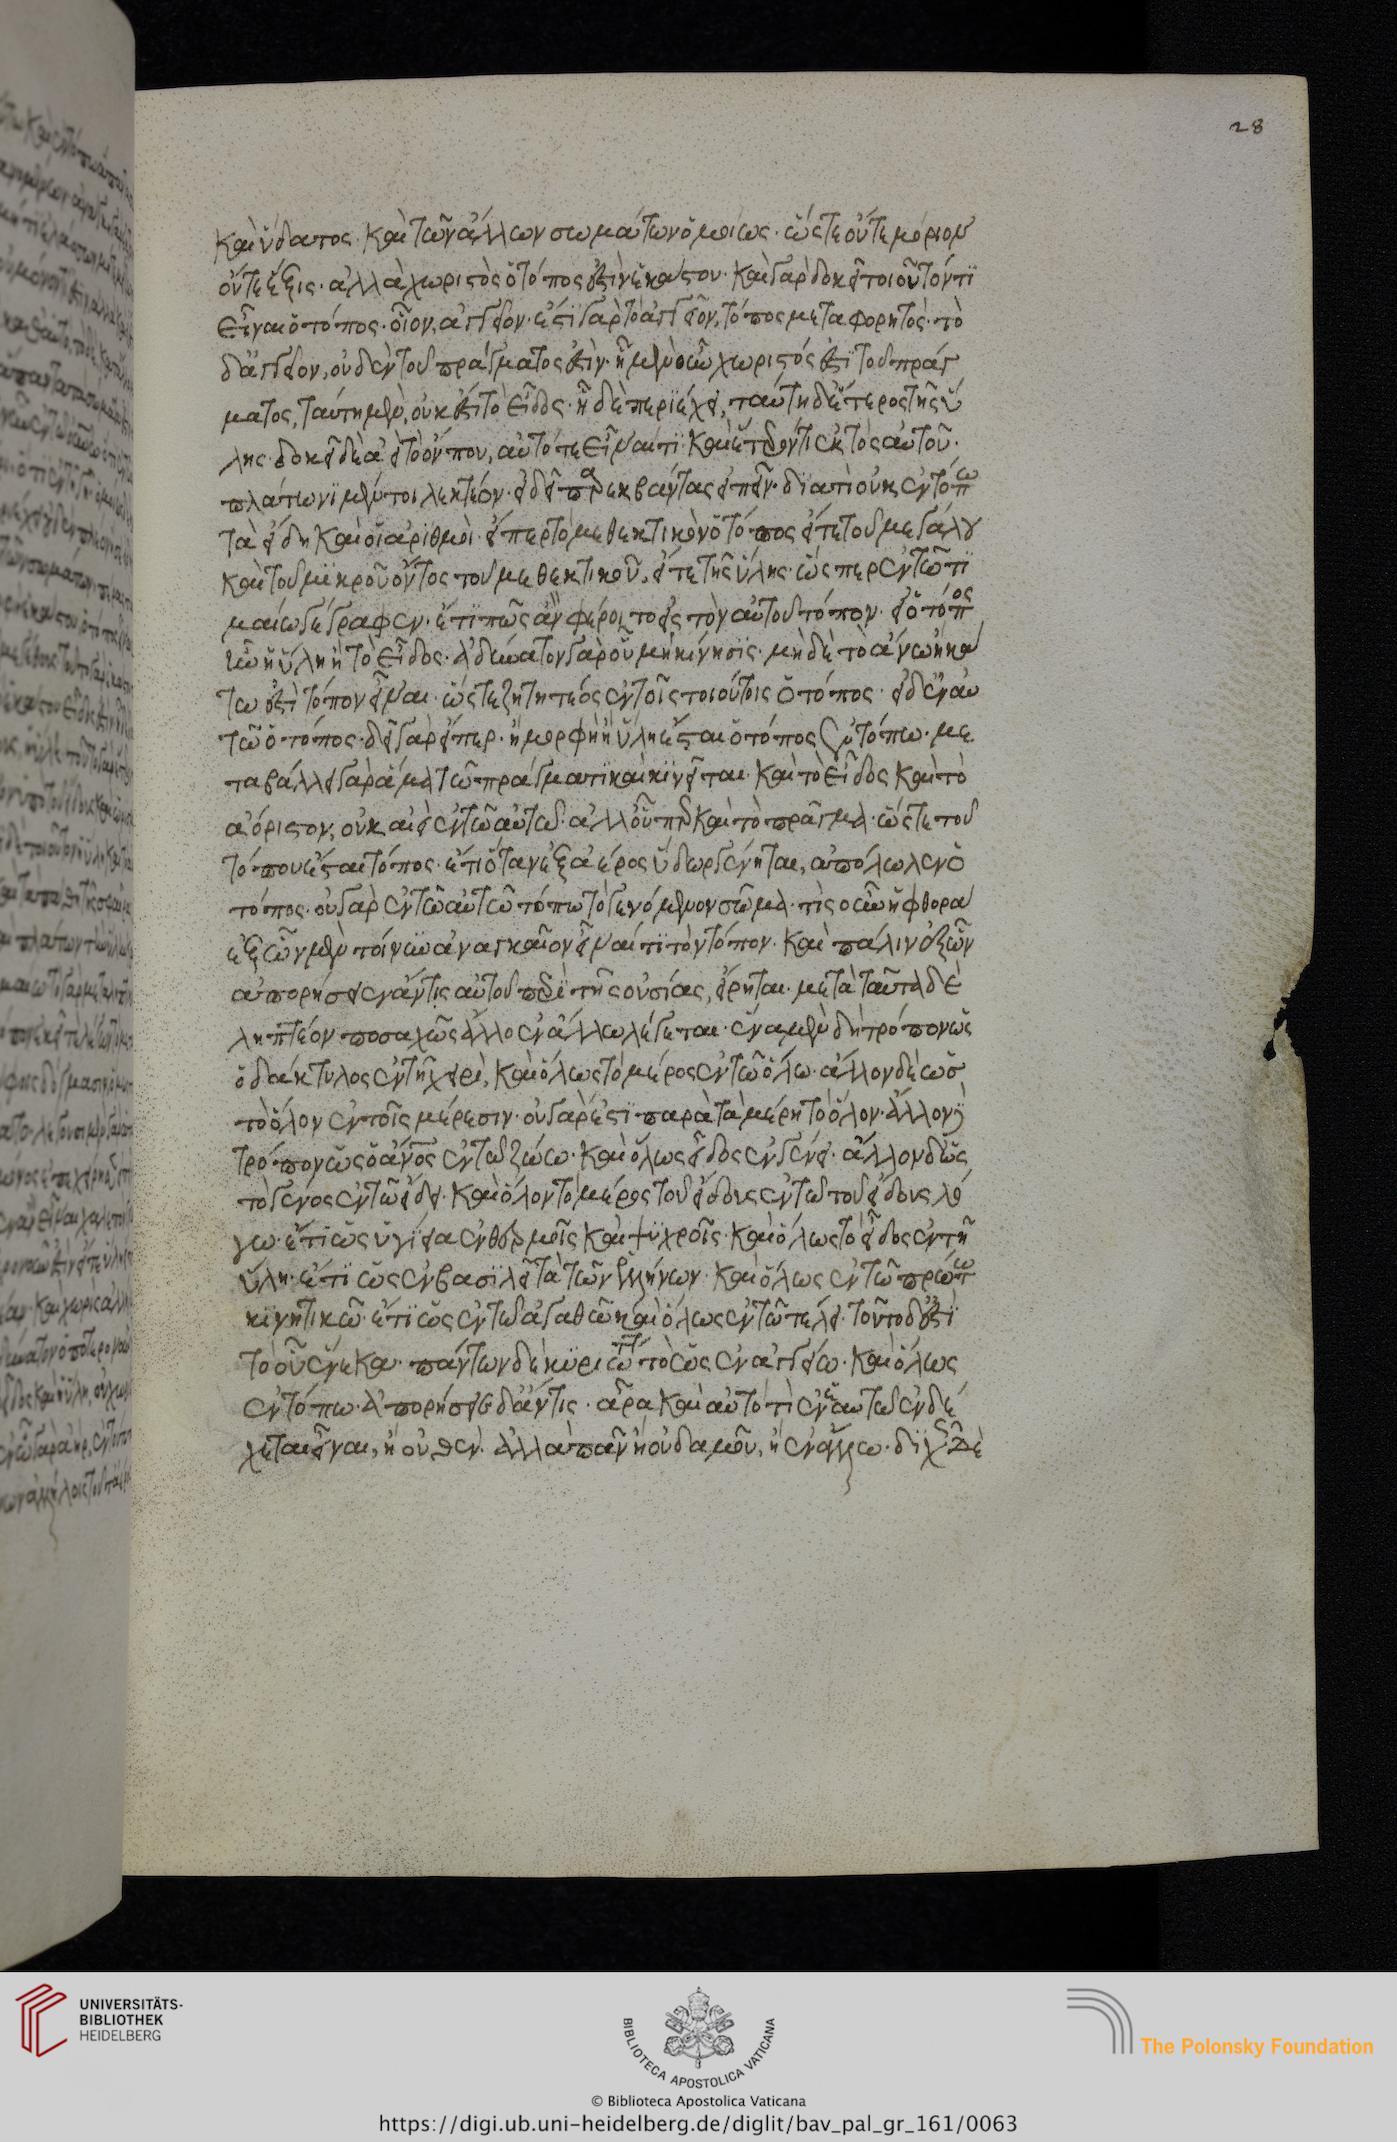 καὶ ὕδατος. καὶ τῶν ἄλλων σωμάτων ὁμοίως. ὥστε οὔτε μόριον
οὔτε ἕξις. ἀλλὰ χωριστὸς ὁ τόπος ἐστὶν ἕκαστον. καὶ γὰρ δοκεῖ τοιοῦτόν τι
εἶναι ὁ τόπος. οἷον, ἀγγεῖον. ἔστι γὰρ τὸ ἀγγεῖον, τόπος μεταφορητός. τὸ
δ' ἀγγεῖον, οὐδὲν τοῦ πράγματος ἐστίν. ᾗ μὲν οὖν χωριστός ἐστι τοῦ πράγ
ματος, ταύτη μὲν, οὐκ ἔστι τὸ εἶδος. ᾗ δὲ περιέχει, ταύτη δ' ἕτερος τῆς ὕ
λης. δοκεῖ δὲ ἀεὶ τὸ ὄν που, αὐτό τε εἶναί τι. καὶ ἕτερόν τι ἐκτὸς αὐτοῦ.
πλάτωνι μέντοι λεκτέον. εἰ δεῖ παρεκβάντας εἰπεῖν. διατί οὐκ ἐν τόπω
τὰ εἴδη καὶ οἱ ἀριθμοὶ. εἴπερ τὸ μεθεκτικὸν ὁ τόπος εἴτε τοῦ μεγάλου
καὶ τοῦ μικροῦ ὄντος τοῦ μεθεκτικοῦ, εἴτε τῆς ὕλης. ὥσπερ ἐν τῶ τι
μαίω γέγραφεν. ἔτι πῶς ἂν φέροιτο εἰς τὸν αὐτοῦ τόπον. εἰ ὁ τόπος
ἦν ἡ ὕλη ἢ τὸ εἶδος. ἀδύνατον γὰρ οὗ μὴ κίνησις. μὴ δὲ τὸ ἄνω ἢ κά
τω ἐστὶ τόπον εἶναι. ὥστε ζητητέος ἐν τοῖς τοιούτοις ὁ τόπος. εἰ δ' ἐν αὐ
τῶ ὁ τόπος. δεῖ γὰρ εἴπερ. ἢ μορφὴ ἢ ὕλη ἔσται ὁ τόπος ἐν τόπω. με
ταβάλλει γὰρ ἅμα τῶ πράγματι καὶ κινεῖται. καὶ τὸ εἶδος καὶ τὸ
ἀόριστον, οὐκ αἰεὶ ἐν τῶ αὐτῶ. ἀλλ' οὗπερ καὶ τὸ πρᾶγμα. ὥστε τοῦ
τόπου ἔσται τόπος. ἔτι ὅταν ἐξ ἀέρος ὕδωρ γένηται, ἀπόλωλεν ὁ
τόπος. οὐ γὰρ ἐν τῶ αὐτῶ τόπω τὸ γενόμενον σῶμα. τίς οὖν ἡ φθορά
ἐξ ὧν μὲν τοίνυν ἀναγκαῖον εἶναί τι τὸν τόπον. καὶ πάλιν ἐξ ὧν
ἀπορήσειεν ἄν τις αὐτοῦ περὶ τῆς οὐσίας, εἴρηται. μετὰ ταῦτα δὲ
ληπτέον ποσαχῶς ἄλλο ἐν ἄλλω λέγεται. ἕνα μὲν δὴ τρόπον ὡς
ὁ δάκτυλος ἐν τῆ χειρὶ, καὶ ὅλως τὸ μέρος ἐν τῶ ὅλω. ἄλλον δὲ ὡς
τὸ ὅλον ἐν τοῖς μέρεσιν. οὐ γὰρ ἔστι παρὰ τὰ μέρη τὸ ὅλον. ἄλλον δὲ
τρόπον ὡς ὁ ἄνος ἐν τῶ ζώω. καὶ ὅλως εἶδος ἐν γένει. ἄλλον δ' ὡς
τὸ γένος ἐν τῶ εἴδει. καὶ ὅλον τὸ μέρος τοῦ εἴδους ἐν τῶ τοῦ εἴδους λό
γω. ἔτι ὡς ὑγίεια ἐν θερμοῖς καὶ ψυχροῖς. καὶ ὅλως τὸ εἶδος ἐν τῆ
ὕλη. ἔτι ὡς ἐν βασιλεῖ τὰ τῶν ἑλλήνων. καὶ ὅλως ἐν τῶ πρώτω
κινητικῶ. ἔτι ὡς ἐν τῶ ἀγαθῶ καὶ ὅλως ἐν τῶ τέλει. τοῦτο δ' ἐστὶ
τὸ οὗ ἕνεκα. πάντων δὲ κυριώτατον τὸ ὡς ἐν ἀγγείω. καὶ ὅλως
ἐν τόπω. ἀπορήσειε δ' ἄν τις. ἆρα καὶ αὐτό τι ἐν ἑαυτῶ ἐνδέ
χεται εἶναι, ἢ οὐθέν. ἀλλὰ πᾶν ἢ οὐδαμοῦ, ἢ ἐν ἄλλω. διχῶς δὲ
28
UNIVERSITÄTS-
BIBLIOTHEK
HEIDELBERG
BIBLIOTECA APOSTOLICA VATICANA
The Polonsky Foundation
© Biblioteca Apostolica Vaticana
https://digi.ub.uni-heidelberg.de/diglit/bav_pal_gr_161/0063